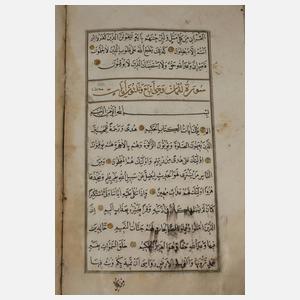 القرآن من كل مثل ولئن جئتهم بآية ليقولن الذين كفروا إن
أنتم إلا مبطلون كذلك يطبع الله على قلوب الذين لا يعلمون
فاصبر إن وعد الله حق ولا يستخفنك الذين لا يوقنون
سورة لقمن وهي اربع وثلثون آيات
بسم الله الرحمن الرحيم
الم تلك آيات الكتاب الحكيم هدى ورحمة للمحسنين
الذين يقيمون الصلوة ويؤتون الزكوة وهم بالآخرة هم يوقنون
أولئك على هدى من ربهم وأولئك هم المفلحون ومن
الناس من يشتري لهو الحديث ليضل عن سبيل الله بغير علم ويتخذها
هزوا أولئك لهم عذاب مهين وإذا تتلى عليه آياتنا ولى مستكبرا
كأن لم يسمعها كأن في أذنيه وقرا فبشره بعذاب أليم إن
الذين آمنوا وعملوا الصالحات لهم جنات النعيم خالدين
فيها وعد الله حقا وهو العزيز الحكيم خلق السموات بغير
عمد ترونها وألقى في الأرض رواسي أن تميد بكم وبث فيها